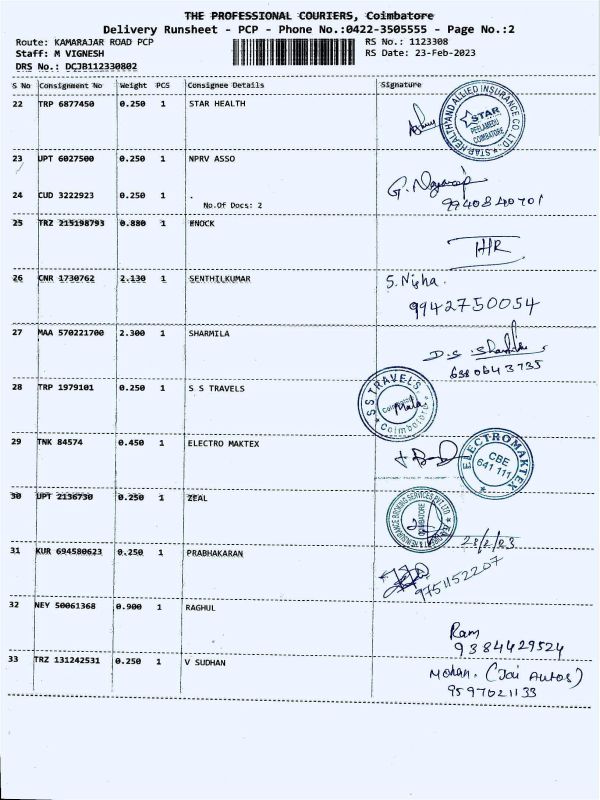 THE PROFESSIONAL COURIERS, Coimbatore
Delivery Runsheet - PCP - Phone No.:0422-3505555 - Page No.:2
Route: KAMARAJAR ROAD PCP RS No.: 1123308
Staff: M VIGNESH RS Date: 23-Feb-2023
DRS No.: DCJB112330802
S No Consignment No Weight PCS Consignee Details Signature
22 TRP 6877450 0.250 1 STAR HEALTH
STAR HEALTH AND ALLIED INSURANCE CO. LTD.
STAR
PEELAMEDU
COIMBATORE
23 UPT 6027500 0.250 1 NPRV ASSO
24 CUD 3222923 0.250 1 .
No.Of Docs: 2
9940840701
25 TRZ 215198793 0.880 1 ENOCK
26 CNR 1730762 2.130 1 SENTHILKUMAR S. Nisha.
9942750054
27 MAA 570221700 2.300 1 SHARMILA
D.S. Sharmila
6380643735
28 TRP 1979101 0.250 1 S S TRAVELS
S S TRAVELS
Coimbatore
Mala
29 TNK 84574 0.450 1 ELECTRO MAKTEX
ELECTROMAKTEX
CBE
641 111
30 UPT 2136730 0.250 1 ZEAL
COIMBATORE
23/2/23
31 KUR 694580623 0.250 1 PRABHAKARAN
9751152207
32 NEY 50061368 0.900 1 RAGHUL
Ram
9384429524
33 TRZ 131242531 0.250 1 V SUDHAN Mohan. (Jai Autos)
9597021133